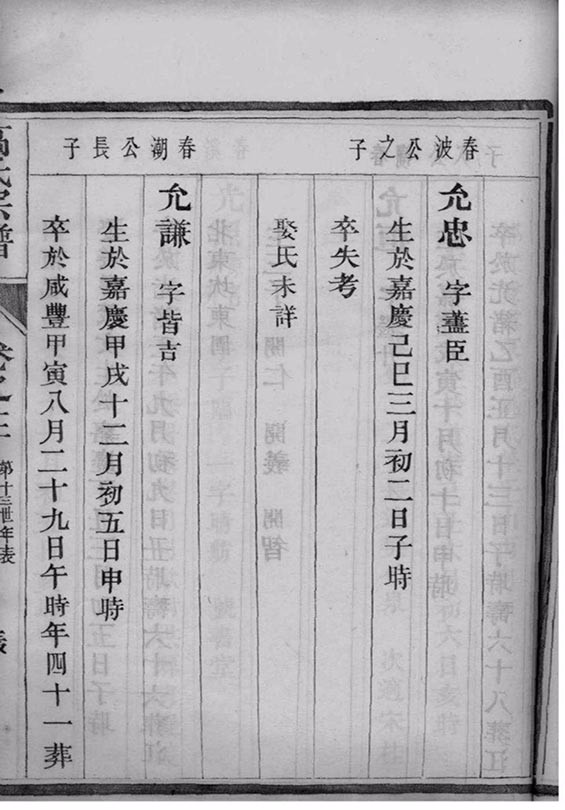 春波公之子
允忠 字藎臣
生於嘉慶己巳三月初二日子時
卒失考
娶氏未詳
春湖公長子
允謙 字皆吉
生於嘉慶甲戌十二月初五日申時
卒於咸豐甲寅八月二十九日午時年四十一葬
氏宗譜
卷之三
第十三世年表